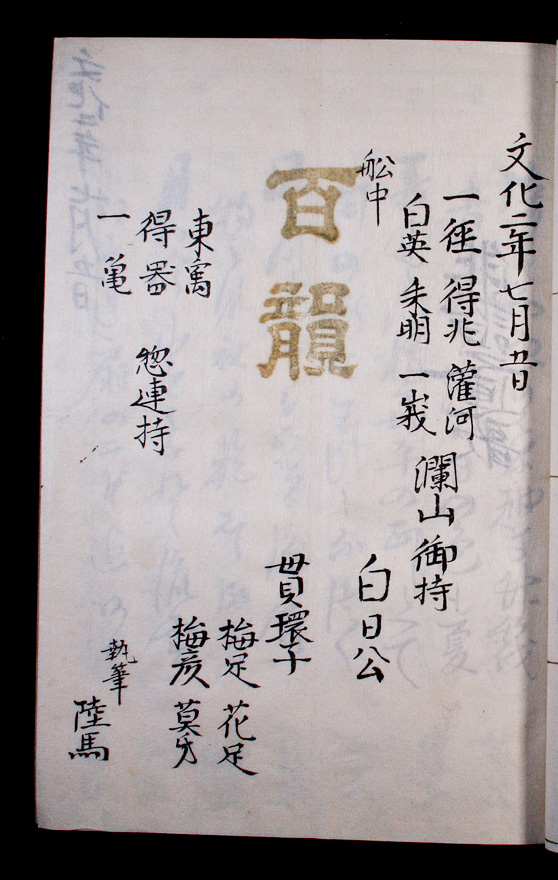 文化二年七月五日
一徑 得兆 灌河
白英 未明 一峩
瀾山 御持
舩中
白日公
百韻
貫環子
東寓
得器
一亀
惣連持
梅足 花足
梅彦 莫牙
執筆
陸馬